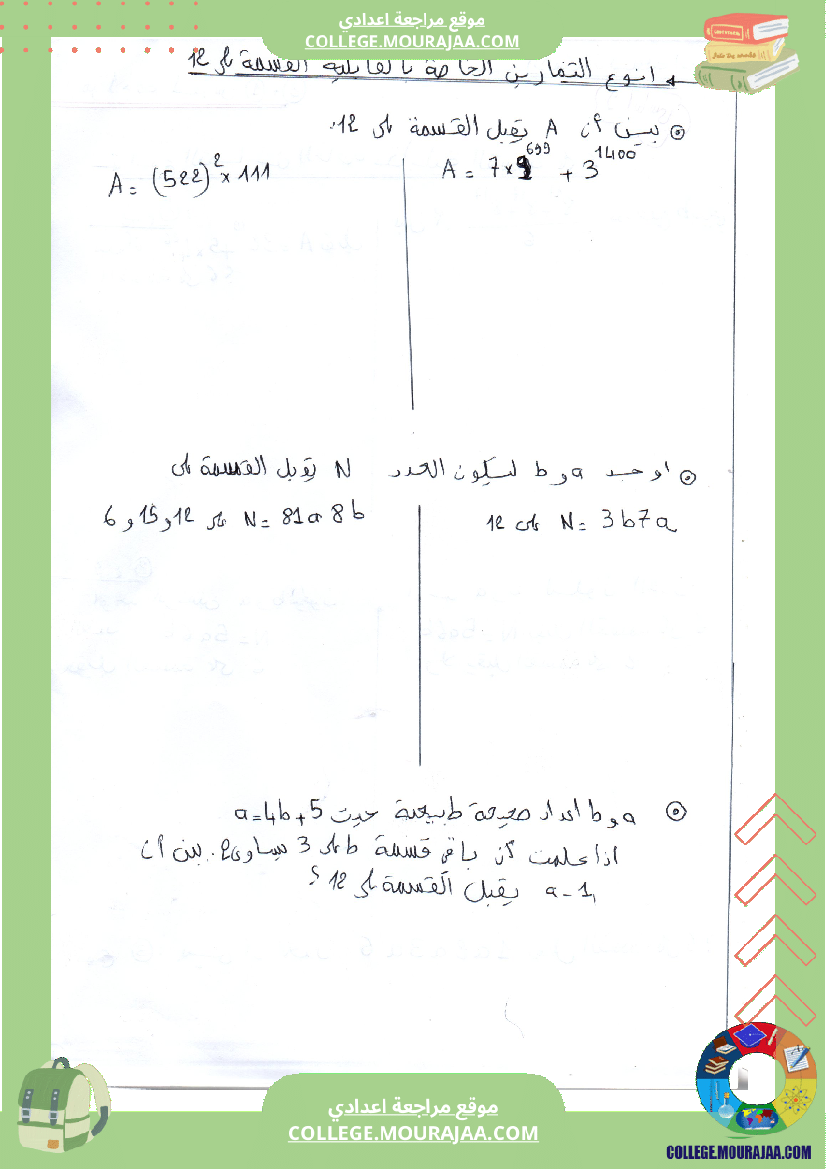 موقع مراجعة اعدادي
COLLEGE.MOURAJAA.COM
انوع التمارين الخاصة بالقابلية القسمة على 12
بين أن A يقبل القسمة على 12.
A = 7×9^699 + 3^1400
A = (522)^2 × 111
اوجد a و b ليكون العدد N يقبل القسمة على
N = 3b7a على 12
N = 81a8b على 12 و 15 و 6
a و b اعداد صحيحة طبيعية حيث a=4b+5
اذا علمت أن باقي قسمة b على 3 يساوي 2. بين أن
a-1 يقبل القسمة على 12 ؟
موقع مراجعة اعدادي
COLLEGE.MOURAJAA.COM
COLLEGE.MOURAJAA.COM